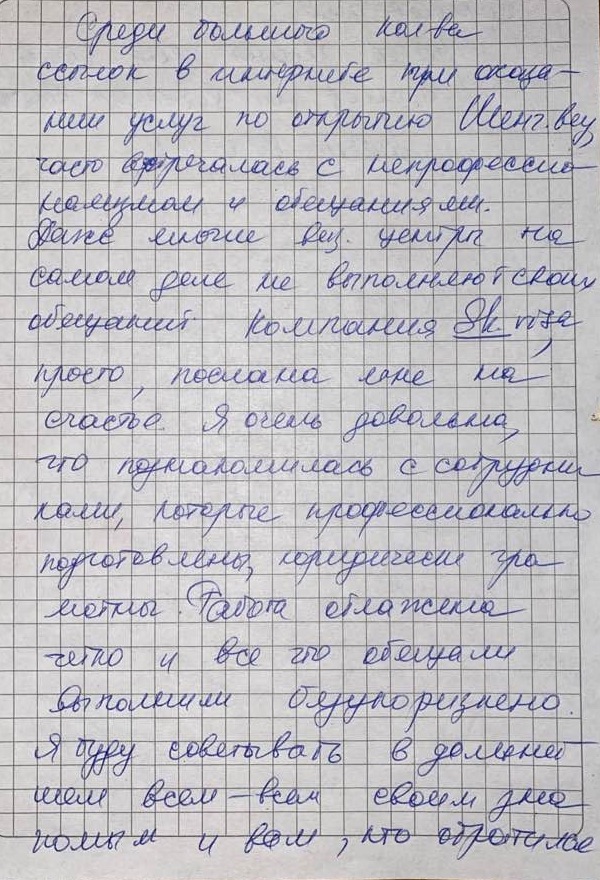 Среди большого кол-ва
ссылок в интернете при оказа-
нии услуг по открытию Шенг. виз,
часто встречалась с непрофессио-
нализмом и обещаниями.
Даже многие виз. центры на
самом деле не выполняют своих
обещаний Компания Sk. viza
просто, послана мне на
счастье. Я очень довольна,
что познакомилась с сотрудни
ками, которые профессионально
подготовлены, юридически гра
мотны. Работа отлажена
четко и все что обещали
выполнили безукоризнено.
Я буду советывать в дальней
шем всем-всем своим зна
комым и вам, кто обратился